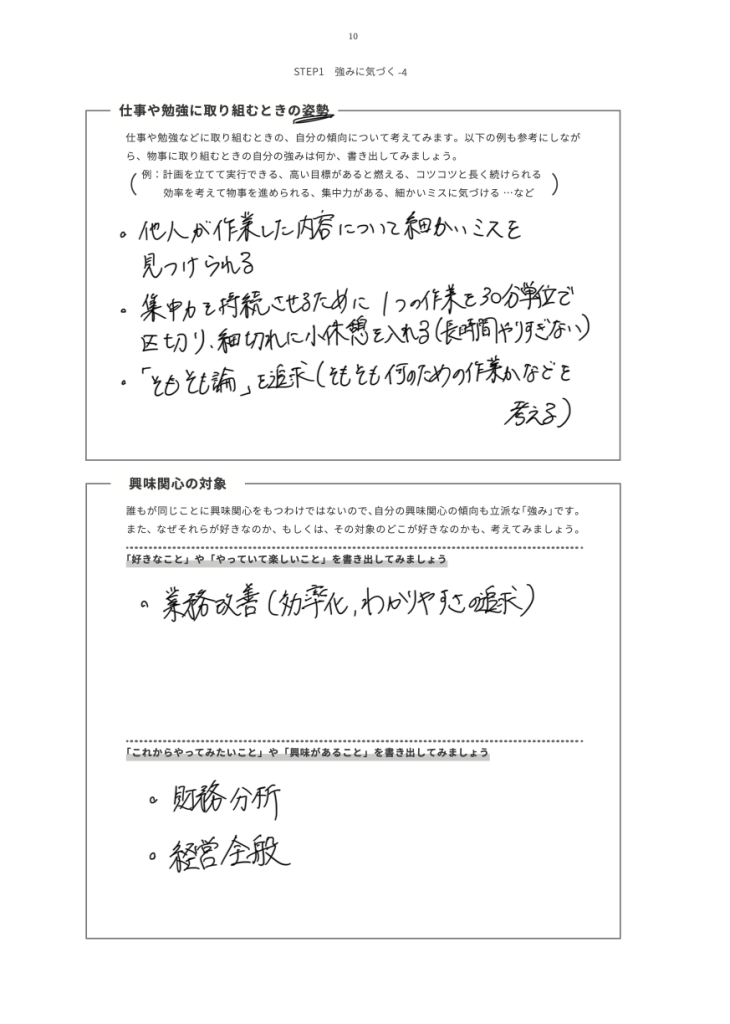 10
STEP1　強みに気づく -4
仕事や勉強に取り組むときの姿勢
仕事や勉強などに取り組むときの、自分の傾向について考えてみます。以下の例も参考にしなが
ら、物事に取り組むときの自分の強みは何か、書き出してみましょう。
例：計画を立てて実行できる、高い目標があると燃える、コツコツと長く続けられる
効率を考えて物事を進められる、集中力がある、細かいミスに気づける …など
。他人が作業した内容について細かいミスを
見つけられる
・集中力を持続させるために 1つの作業を30分単位で
区切り、細切れに小休憩を入れる(長時間やりすぎない)
・「そもそも論」を追求(そもそも何のための作業かなどを
考える)
興味関心の対象
誰もが同じことに興味関心をもつわけではないので、自分の興味関心の傾向も立派な「強み」です。
また、なぜそれらが好きなのか、もしくは、その対象のどこが好きなのかも、考えてみましょう。
「好きなこと」や「やっていて楽しいこと」を書き出してみましょう
。業務改善(効率化,わかりやすさの追求)
「これからやってみたいこと」や「興味があること」を書き出してみましょう
。財務分析
。経営全般